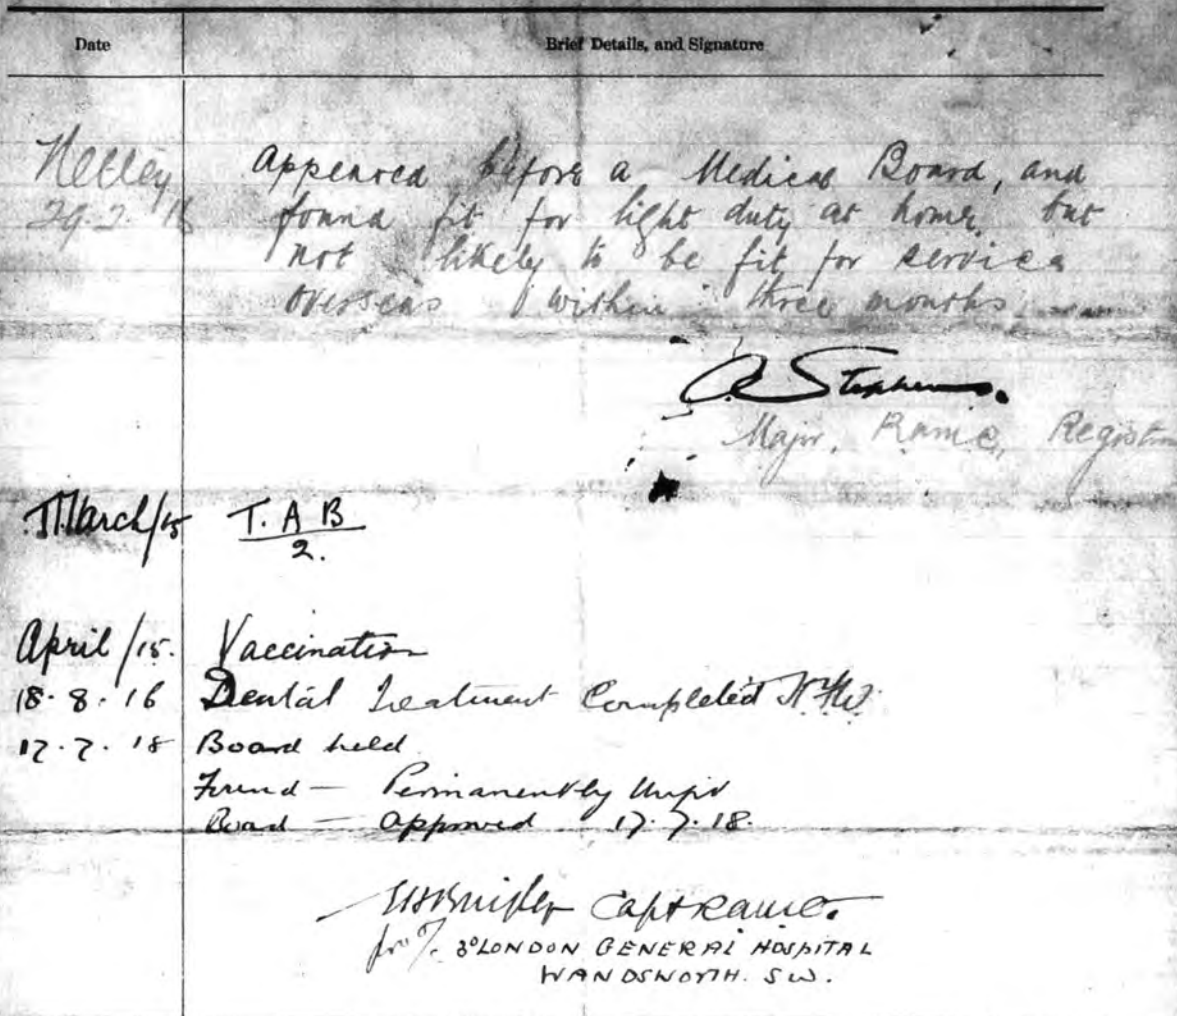 Date Brief Details, and Signature
Netley Appeared before a Medical Board, and
29.2.16 found fit for light duty at home, but
not likely to be fit for service
overseas within three months.
Stephens.
Major, RAMC, Registrar
March/15 T.A.B
2.
April/15. Vaccination
18.8.16 Dental Treatment Completed
17.7.18 Board held
Found — Permanently Unfit
Board — approved 17.7.18.
Capt RAMC.
for O/C 3º LONDON GENERAL HOSPITAL
WANDSWORTH. S.W.